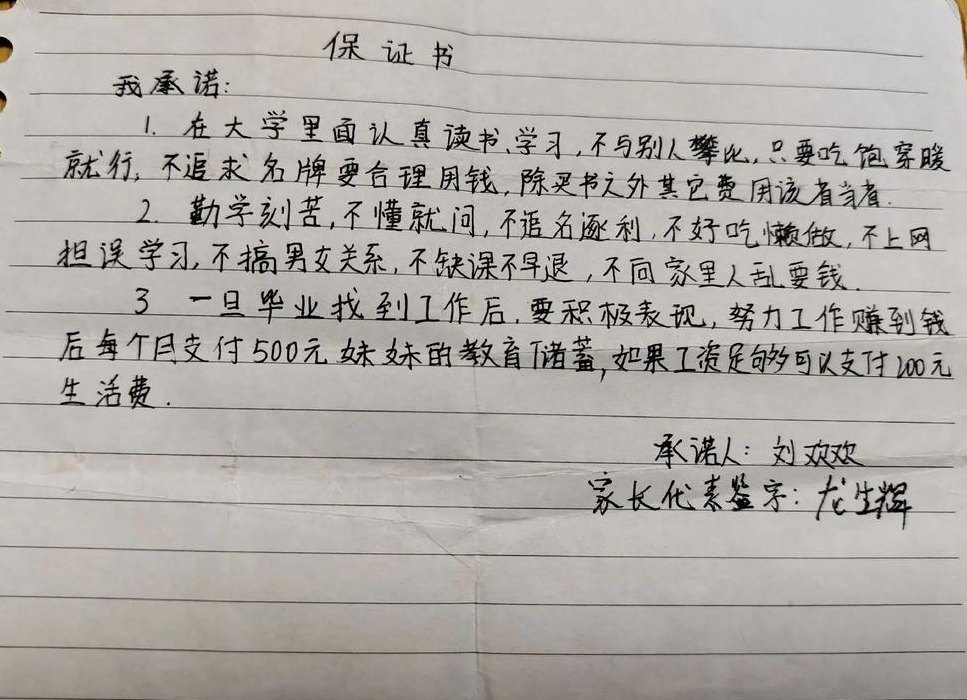 保证书
我承诺:
1. 在大学里面认真读书、学习,不与别人攀比,只要吃饱穿暖
就行,不追求名牌要合理用钱,除买书之外其它费用该省当省.
2. 勤学刻苦,不懂就问,不追名逐利,不好吃懒做,不上网
担误学习,不搞男女关系,不缺课不早退,不向家里人乱要钱.
3 一旦毕业找到工作后,要积极表现,努力工作赚到钱
后每个月支付500元妹妹的教育储蓄,如果工资足够可以支付200元
生活费.
承诺人: 刘欢欢
家长代表鉴字: 龙生辉